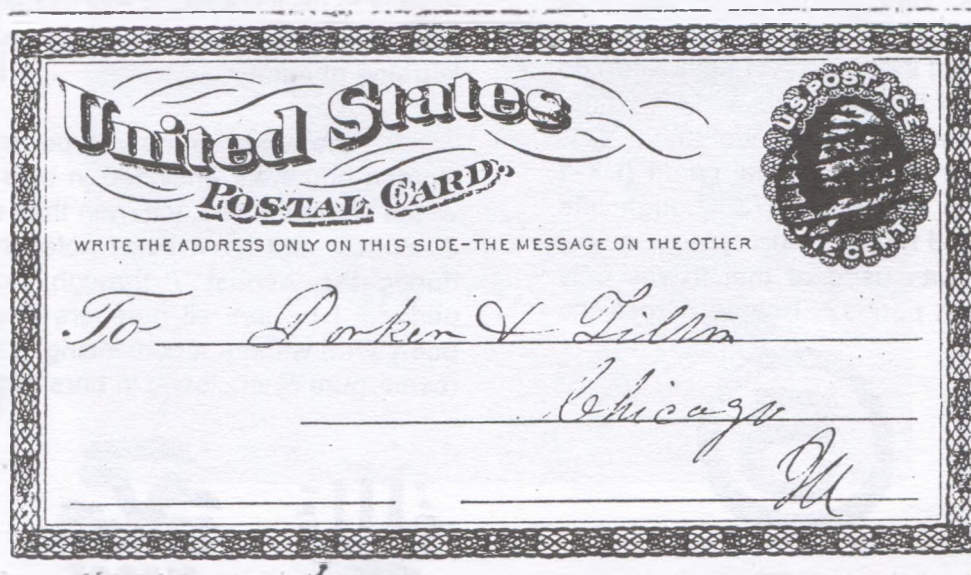 United States
POSTAL CARD.
U.S. POSTAGE
ONE CENT
WRITE THE ADDRESS ONLY ON THIS SIDE-THE MESSAGE ON THE OTHER
To &
Chicago
Ill